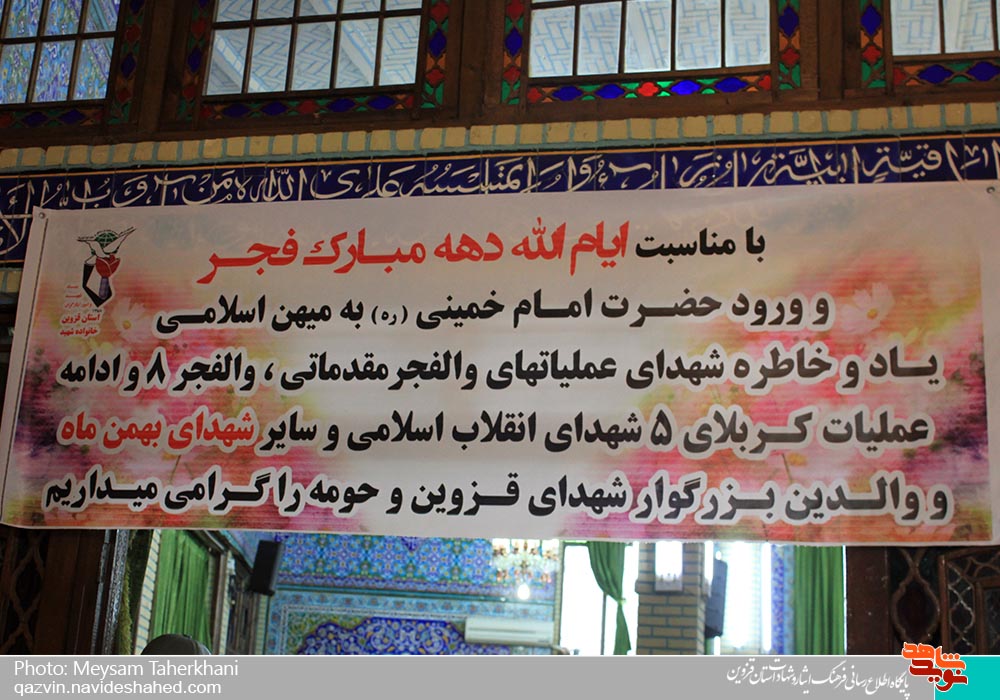 با مناسبت ایام الله دهه مبارک فجر
و ورود حضرت امام خمینی (ره) به میهن اسلامی
یاد و خاطره شهدای عملیاتهای والفجر مقدماتی ، والفجر ۸ و ادامه
عملیات کربلای ۵ شهدای انقلاب اسلامی و سایر شهدای بهمن ماه
و والدین بزرگوار شهدای قزوین و حومه را گرامی میداریم
استان قزوین
خانواده شهید
Photo: Meysam Taherkhani
qazvin.navideshahed.com
پایگاه اطلاع رسانی فرهنگ ایثار و شهادت استان قزوین
نوید شاهد